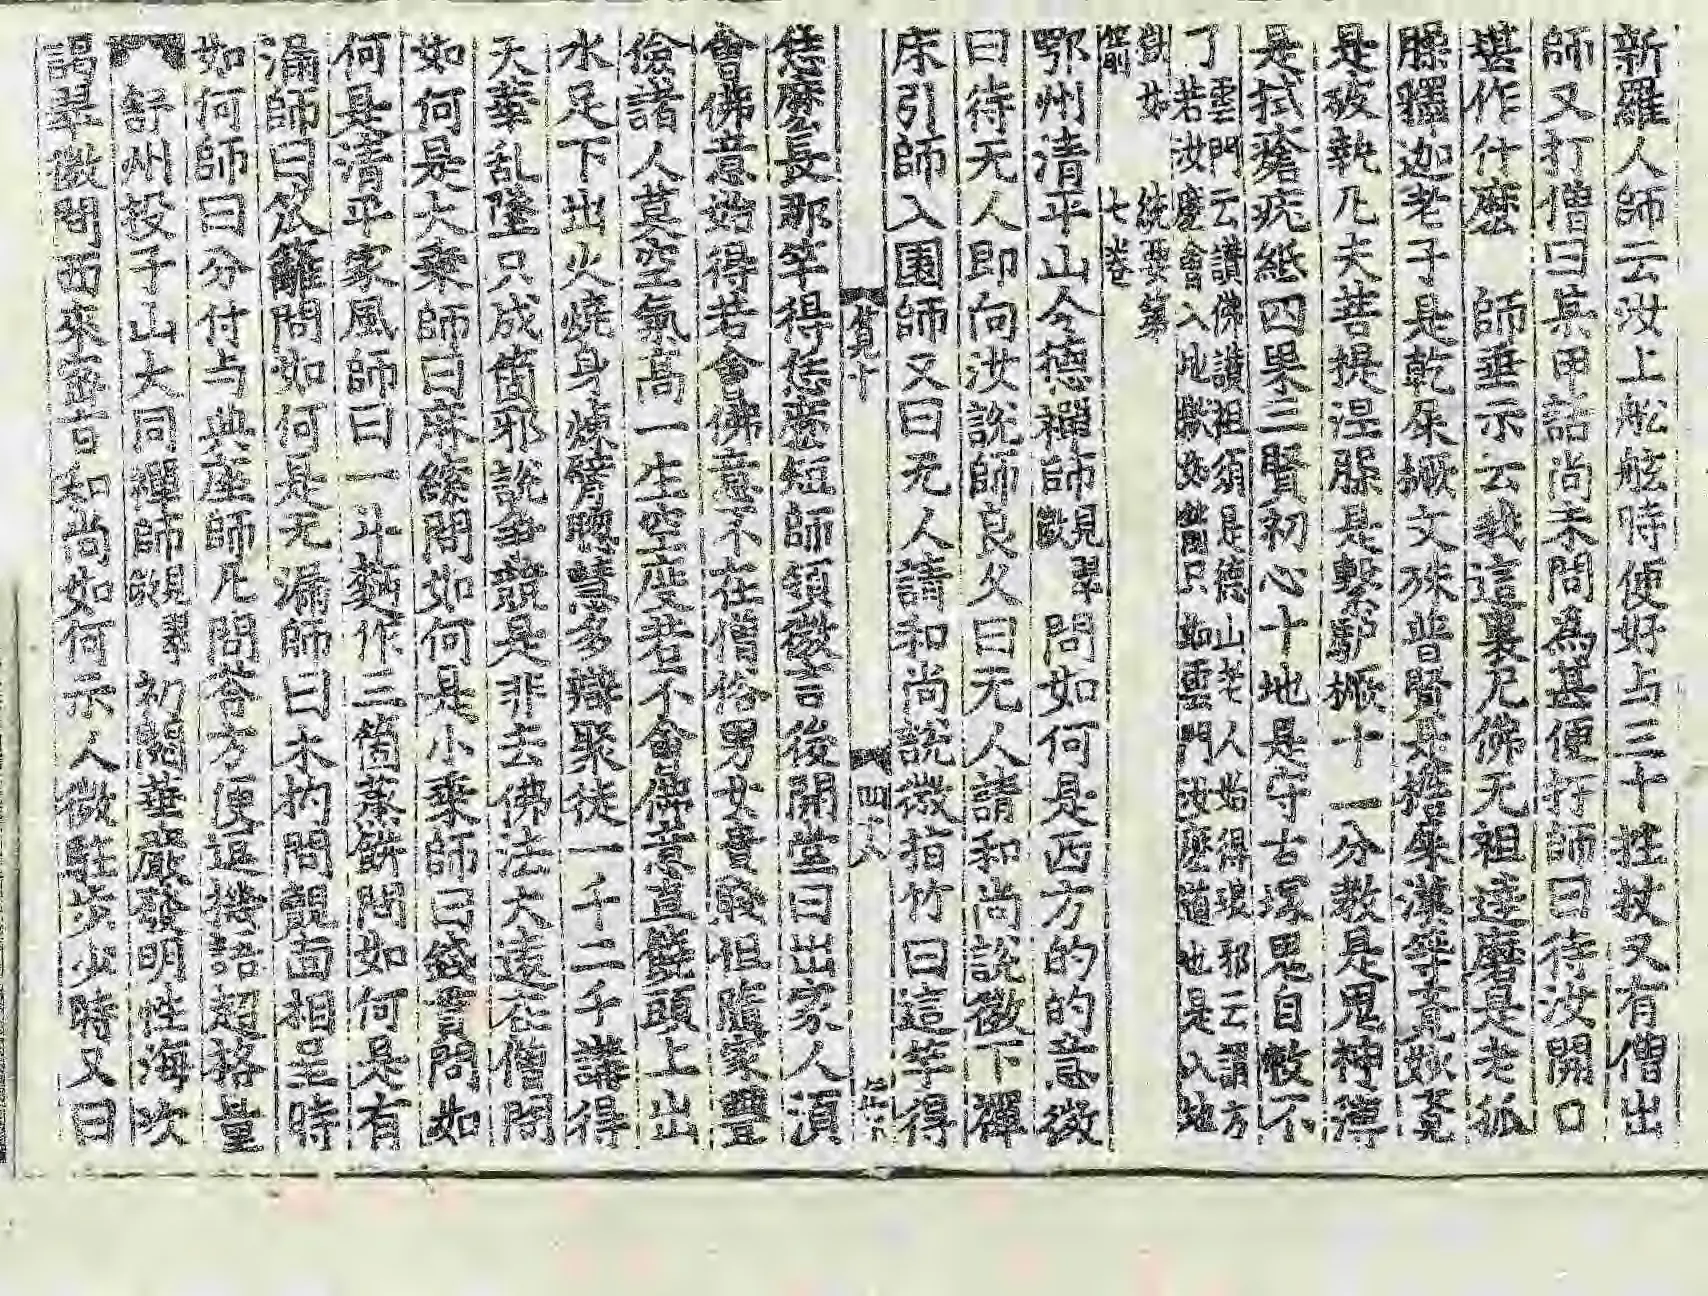 新羅人師云汝上舩舷時便好与三十拄杖又有僧出
師又打僧曰某甲話尚未問為甚便打師曰待汝開口
堪作什麽　師垂示云我這裏无佛无祖達磨是老狐
臊釋迦老子是乾屎橛文殊普賢是擔屎漢等覚妙覚
是破執凡夫菩提涅槃是繫驢橛十二分教是鬼神簿
是拭瘡疣紙四果三賢初心十地是守古塚鬼自救不
了雲門云讃佛讃祖須是德山老人始得 邪云謂方
若汝麽會入地獄如 只如雲門汝麽道也是入地
獄如 統要第
箭 七卷
鄂州清平山令德禪師覞翠　問如何是西方的的意微
曰待无人即向汝說師良久曰无人請和尚說微下禪
床引師入園師又曰无人請和尚說微指竹曰這竿得
賢十　四十八
恁麽長那竿得恁麽短師領微言後開堂曰出家人須
會佛意始得若會佛意不在僧俗男女貴賤但隨家豐
儉諸人莫空氣高一生空坐若不會佛意直饒頭上出
水足下出火燒身煉臂聰慧多辯聚徒一千二千講得
天華乱墜只成箇邪說爭競是非去佛法大遠在僧問
如何是大乘師曰麻索問如何是小乘師曰錢貫問如
何是清平家風師曰一斗麵作三箇蒸餅問如何是有
漏師曰笊籬問如何是无漏師曰木杓問覿面相呈時
如何師曰分付与典座師凡問答方便逗機語超格量
舒州投子山大同禪師覞翠　初闋華嚴發明性海次
謁翠微問西來密旨和尚如何示人微駐步少時又曰